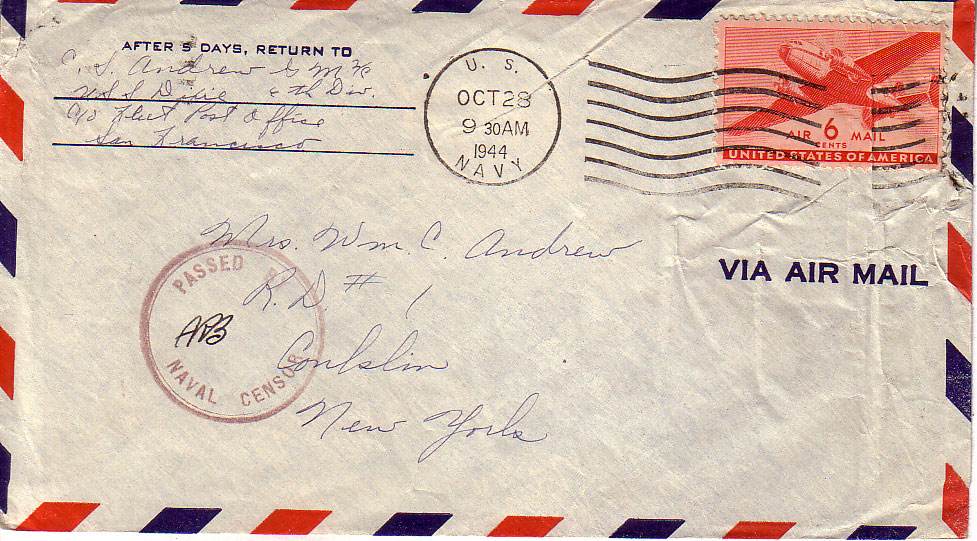 AFTER 5 DAYS, RETURN TO
C. S. Andrew G M
U S S Dixie 6th Div.
c/o Fleet Post Office
San Francisco
U. S.
OCT 28
9 30AM
1944
NAVY
AIR 6 MAIL
CENTS
UNITED STATES OF AMERICA
VIA AIR MAIL
Mrs. Wm. C. Andrew
R. D. # 1
Conklin
New York
PASSED
APB
NAVAL CENSOR